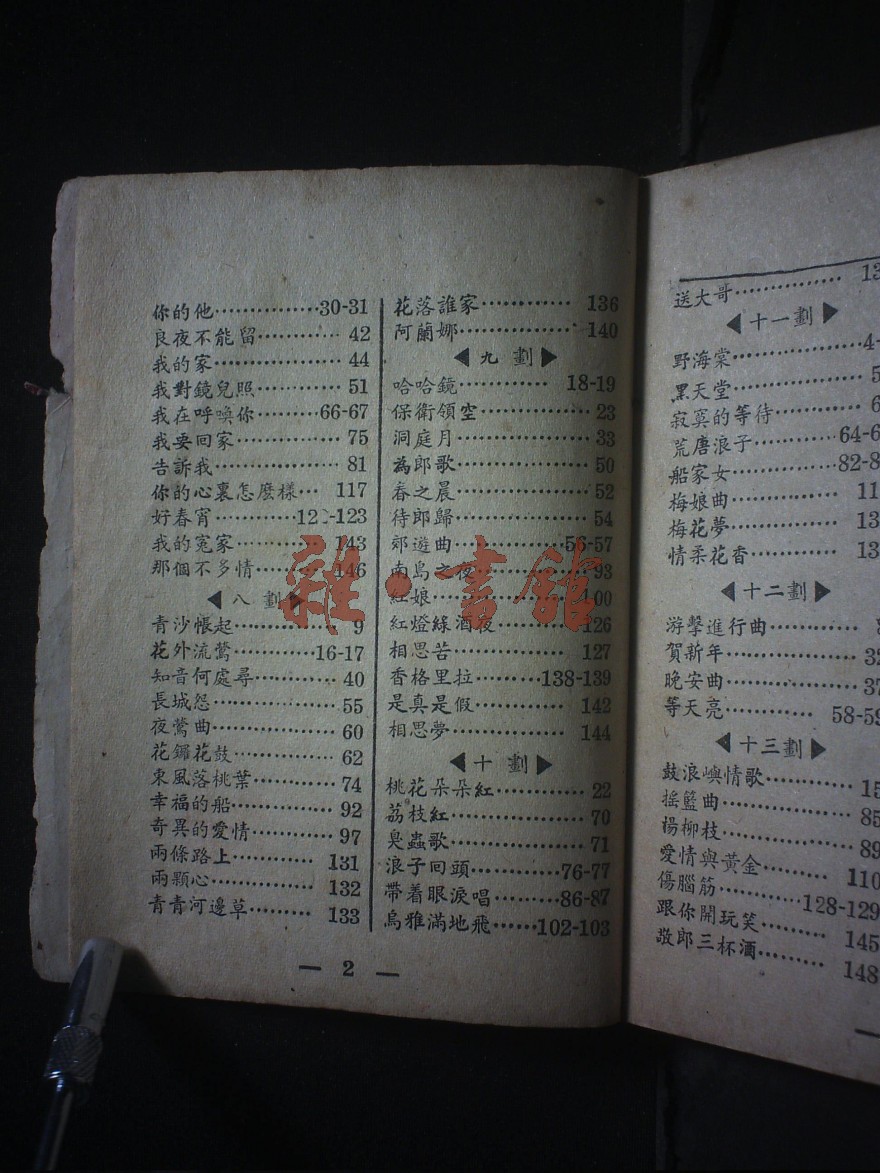 你的他……………30-31
良夜不能留………… 42
我的家……………… 44
我對鏡兒照………… 51
我在呼喚你………66-67
我要回家…………… 75
告訴我……………… 81
你的心裏怎麽樣… 117
好春宵…………12 -123
我的冤家………… 143
那個不多情……… 146
◀八 劃▶
青沙帳起…………… 9
花外流鶯………16-17
知音何處尋………… 40
長城怨……………… 55
夜鶯曲……………… 60
花鑼花鼓…………… 62
東風落桃葉………… 74
幸福的船…………… 92
奇異的愛情………… 97
兩條路上………… 131
兩顆心…………… 132
青青河邊草……… 133
花落誰家………… 136
阿蘭娜…………… 140
◀ 九 劃 ▶
哈哈鏡………… 18-19
保衛領空…………… 23
洞庭月……………… 33
為郎歌……………… 50
春之晨……………… 52
待郎歸……………… 54
郊遊曲…………56-57
南島之夜…………… 93
紅娘……………… 100
紅燈綠酒夜……… 126
相思苦…………… 127
香格里拉………138-139
是真是假………… 142
相思夢…………… 144
◀ 十 劃 ▶
桃花朵朵紅………… 22
荔枝紅……………… 70
臭蟲歌……………… 71
浪子回頭…………76-77
帶着眼淚唱………86-87
烏雅滿地飛……102-103
— 2 —
送大哥…………… 13
◀十一劃▶
野海棠……………4-
黑天堂……………5
寂寞的等待…………6
荒唐浪子…………64-6
船家女……………82-8
梅娘曲……………11
梅花夢……………13
情柔花香…………13
◀十二劃▶
游擊進行曲…………
賀新年……………32
晚安曲……………37
等天亮………… 58-59
◀十三劃▶
鼓浪嶼情歌………15
搖籃曲……………85
楊柳枝……………89
愛情與黃金………110
傷腦筋…………128-129
跟你開玩笑………145
敬郎三杯酒………148
雜·書館